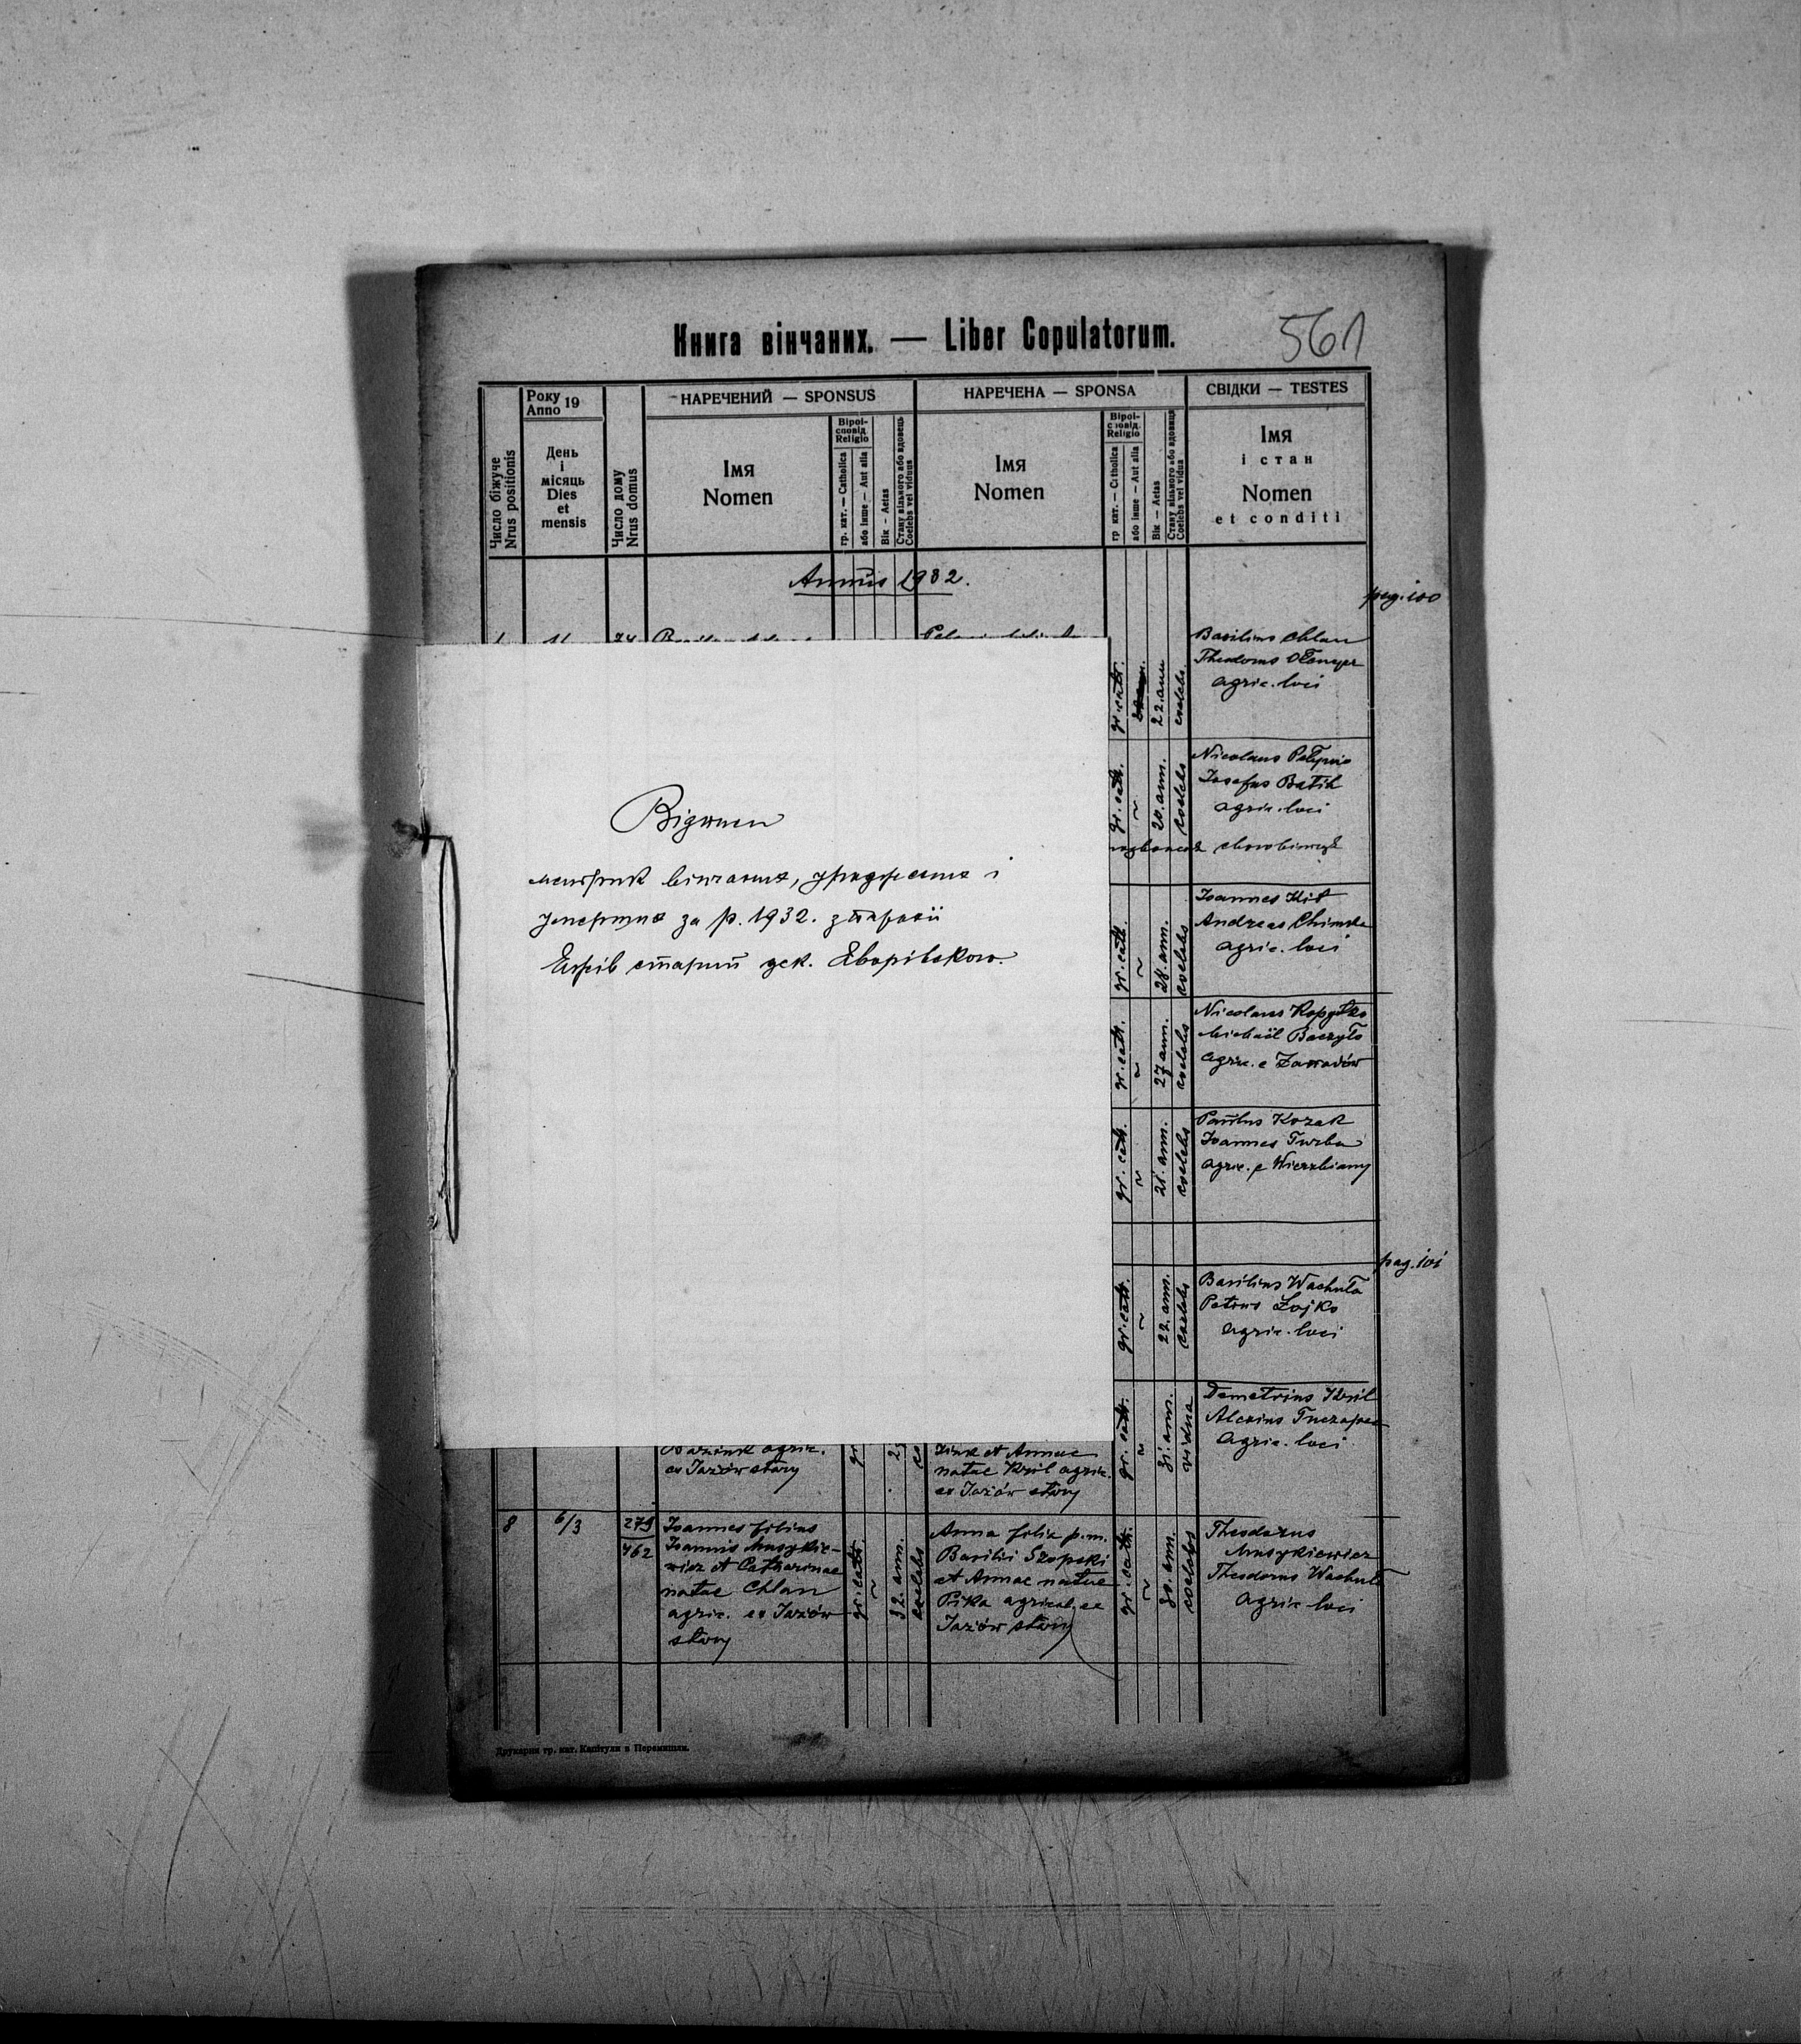 Книга вінчаних. — Liber Copulatorum.
561
Число біжуче
Nrus positionis
Року
Anno 19
День
і
місяць
Dies
et
mensis
Число дому
Nrus domus
НАРЕЧЕНИЙ — SPONSUS
Імя
Nomen
Віроі-
сповід
Religio
гр. кат. — Catholica
або інше — Aut alia
Вік — Aetas
Стану вільного або вдовець
Coelebs vel viduus
НАРЕЧЕНА — SPONSA
Імя
Nomen
Віроі-
сповід.
Religio
гр кат. — Catholica
або інше — Aut alia
Вік — Aetas
Стану вільного або вдовиця
Coelebs vel vidua
СВІДКИ — TESTES
Імя
і стан
Nomen
et conditi
Annus 1932.
pag. 100
gr. cath.
22. ann
coelebs
Basilius Chlan
Theodorus
agric. loci
gr. cath.
20. ann.
coelebs
Nicolaus
Josefus Batik
agric. loci
gr. cath.
28. ann.
coelebs
Joannes Kit
Andreas
agric. loci
gr. cath.
27 ann.
coelebs
Nicolaus Kopytko
Michaël Baczyło
agric. e Zawadów
gr. cath.
21. ann.
coelebs
Paulus Kozak
Joannes Turba
agric. e Wierzbiany
pag. 101
gr. cath.
22. ann.
coelebs
Basilius Wachuła
Petrus Łojko
agric. loci
gr. cath.
31. ann.
vidua
Demetrius Kril
Alexius
agric. loci
Відписи
метрик вінчаних, уроджених і
умерших за р. 1932. з парохії
Язрів старий дек. Яворівського.
agric.
ex Jazów stary
et Annae
natae Kril agric.
ex Jazów stary
8
6/3
279
462
Joannes filius
Joannis Musykie-
wicz et Catharinae
natae Chlan
agric. ex Jazów
stary
gr. cath.
32. ann.
coelebs
Anna filia p.m.
Basilii Szopski
et Annae natae
Pika agricol. ex
Jazów stary
gr. cath.
30. ann.
coelebs
Theodorus
Musykiewicz
Theodorus Wachuła
agric loci
Друкарня гр. кат. Капітули в Перемишли.